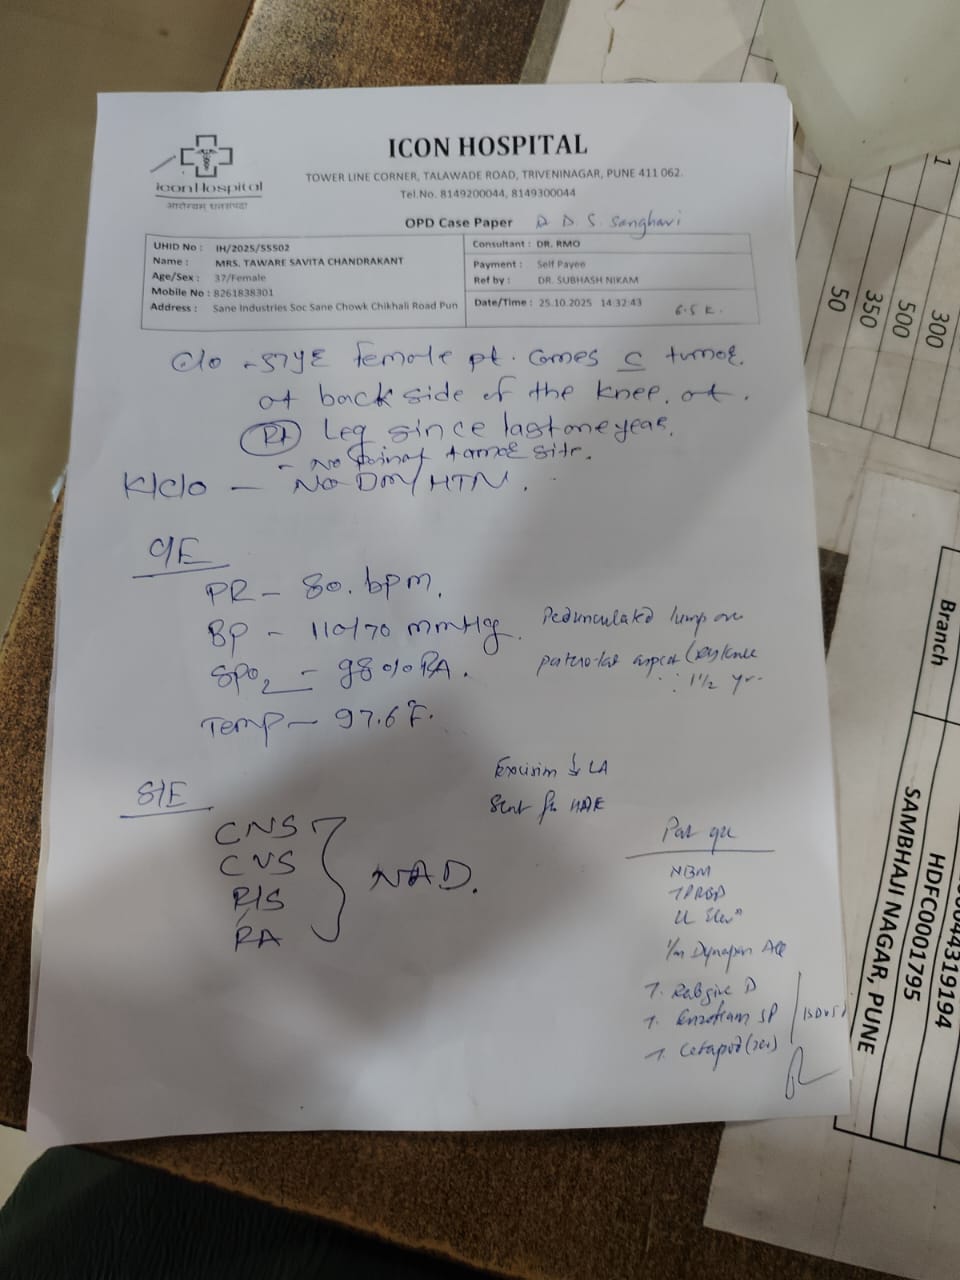 ICON HOSPITAL
TOWER LINE CORNER, TALAWADE ROAD, TRIVENINAGAR, PUNE 411 062.
Tel.No. 8149200044, 8149300044
icon Hospital
आरोग्यम् धनसंपदा
OPD Case Paper D. S. Sanghavi
UHID No : IH/2025/55502
Name : MRS. TAWARE SAVITA CHANDRAKANT
Age/Sex : 37/Female
Mobile No : 8261838301
Address : Sane Industries Soc Sane Chowk Chikhali Road Pun
Consultant : DR. RMO
Payment : Self Payee
Ref by : DR. SUBHASH NIKAM
Date/Time : 25.10.2025 14:32:43
6.5 K.
C/o - 37yr female pt. comes c tumor
at back side of the knee. at.
Rt Leg since last one year.
- No pain at tumor site.
K/C/O - NO DM/HTN.
O/E
PR - 80. bpm.
BP - 110/70 mmHg.
SPO2 - 98% RA.
Temp - 97.6°F.
Pedunculated lump over
aspect knee
1½ yr.
S/E
CNS
CVS
R/S
PA
NAD.
Excision LA
Sent for HPE
NBM
TPRBP
LL Elevn
I/m Dynapar
T. Rabgive D
T. SP
T.
SAMBHAJI NAGAR, PUNE
HDFC0001795
Branch
1
300
500
350
50